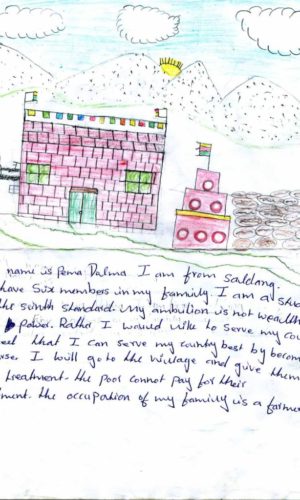 name is Pema Dalma. I am from Saldang.
have Six members in my family. I am a stu
the sinth standard. my ambition is not wealth
power. Ratha I would like to serve my cou
eel that I can serve my country best by becom
rse. I will go to the village and give them
treatment. the poor connot pay for their
ment. the occupation of my family is a farme